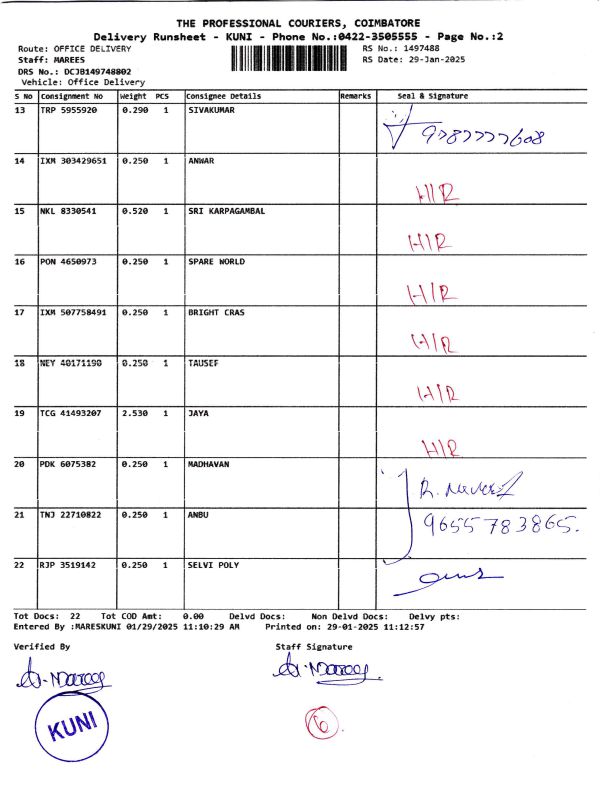 THE PROFESSIONAL COURIERS, COIMBATORE
Delivery Runsheet - KUNI - Phone No.:0422-3505555 - Page No.:2
Route: OFFICE DELIVERY RS No.: 1497488
Staff: MAREES RS Date: 29-Jan-2025
DRS No.: DCJB149748802
Vehicle: Office Delivery
S No Consignment No Weight PCS Consignee Details Remarks Seal & Signature
13 TRP 5955920 0.290 1 SIVAKUMAR
9787777608
14 IXM 303429651 0.250 1 ANWAR
H/R
15 NKL 8330541 0.520 1 SRI KARPAGAMBAL
H/R
16 PON 4650973 0.250 1 SPARE WORLD
H/R
17 IXM 507758491 0.250 1 BRIGHT CRAS
H/R
18 NEY 40171190 0.250 1 TAUSEF
H/R
19 TCG 41493207 2.530 1 JAYA
H/R
20 PDK 6075382 0.250 1 MADHAVAN
R.
21 TNJ 22710822 0.250 1 ANBU
9655783865.
22 RJP 3519142 0.250 1 SELVI POLY
Tot Docs: 22 Tot COD Amt: 0.00 Delvd Docs: Non Delvd Docs: Delvy pts:
Entered By :MARESKUNI 01/29/2025 11:10:29 AM Printed on: 29-01-2025 11:12:57
Verified By Staff Signature
KUNI
6